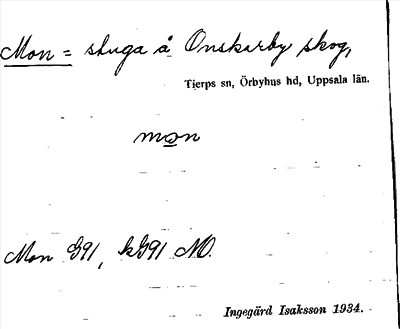 Mon = stuga å Onskarby skog,
Tierps sn, Örbyhus hd, Uppsala län.
mo̲n
Mon G91, kG91 NO.
Ingegärd Isaksson 1934.